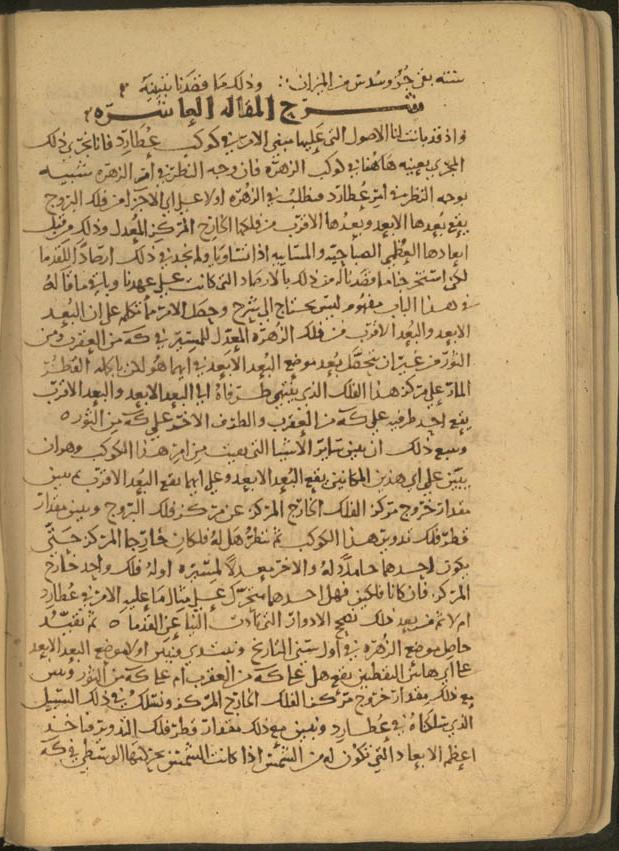 ستته بقى جزو وسدس من الميزان وذلك ما قصدنا تبينه
شرح المقاله العاشره
واذ قد بانت لنا الاصول التى عليها مبنى الامر فى كوكب عطارد فانا نجرى ذلك
المجرى بعينه هاهنا فى كوكب الزهره فان وجه النظر فى امر الزهره شبيه
بوجه النظر فى امر عطارد فنطلب فى الزهره اولا على اى الاجزا من فلك البروج
يقع بعدها الابعد وبعدها الاقرب من فلكها الخارج المركز المعدل وذلك من قبل
ابعادها العظمى الصباحيه والمسايه اذا تساوت ولم نجد فى ذلك ارصاد القدما
لكن استخرجنا ما قصدنا له من ذلك بالارصاد التى كانت على عهدنا وباقى ما قاله
فى هذا الباب مفهوم ليس يحتاج الى شرح وحصل الامر ما تكلم على ان البعد
الابعد والبعد الاقرب من فلك الزهره المعدل للمسير فى كه من العقرب ومن
الثور من غير ان يحصل بعد موضع البعد الابعد فى ايهما هو لان باكله القطر
المار على مركز هذا الفلك الذى ينتهى طرفاه الى البعد الابعد والبعد الاقرب
يقع احد طرفيه على كه من العقرب والطرف الاخر على كه من الثور
ويتبع ذلك ان يبين ساير الاشيا التى بقيت من امر هذا الكوكب وهو ان
يبين على اى هذين المكانين يقع البعد الابعد وعلى ايهما يقع البعد الاقرب ثم يبين
مقدار خروج مركز الفلك الخارج المركز عن مركز فلك البروج ويبين مقدار
قطر فلك تدوير هذا الكوكب ثم ننظر هل له فلكان خارجا المركز حتى
يكون احدهما حاملا له والاخر معدلا لمسيره او له فلك واحد خارج
المركز فان كانا فلكين فهل احدهما متحرك على مثال ما عليه الامر فى عطارد
ام لا ثم من بعد ذلك نصحح الادوار التى تادت الينا عن القدما ثم نقيد
حاصل موضع الزهره فى اول سنى التاريخ ونبتدى فنبين اولا موضع البعد الابعد
على اى هاتين النقطتين يقع هل على كه من العقرب ام على كه من الثور ونبين
مع ذلك مقدار خروج مركز الفلك الخارج المركز ونسلك فى ذلك السبيل
الذى سلكناه فى عطارد ونبين مع ذلك مقدار قطر فلك التدوير فناخذ
اعظم الابعاد التى تكون له من الشمس اذا كانت الشمس بحركتها الوسطى فى كه